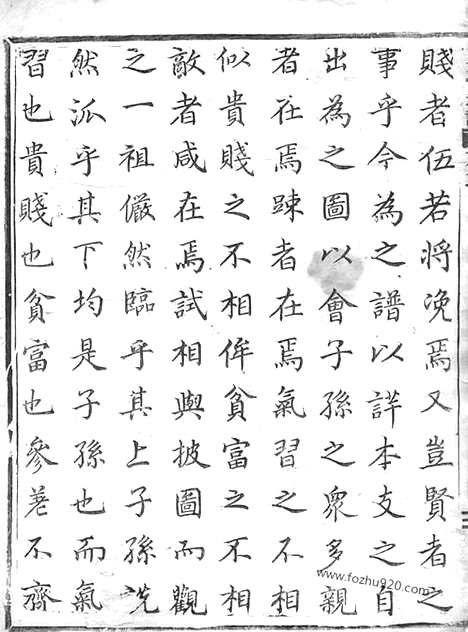 賤者伍若將浼焉又豈賢者之
事乎今為之譜以詳本支之自
出為之圖以會子孫之衆多親
者在焉踈者在焉氣習之不相
似貴賤之不相侔貧富之不相
敵者咸在焉試相與披圖而觀
之一祖儼然臨乎其上子孫詵
然泒乎其下均是子孫也而氣
習也貴賤也貧富也參差不齊
www.fozhu920.com